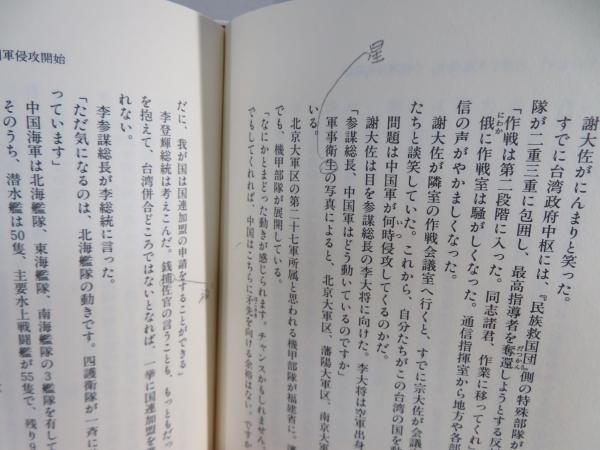 謝大佐がにんまりと笑った。
すでに台湾政府中枢には、『民族救国団』側の特殊部
隊が二重三重に包囲し、最高指導者を奪還しようとする反
「作戦は第二段階に入った。同志諸君、作業に移ってくれ」
俄に作戦室は騒がしくなった。通信指揮室から地方や各部
信の声がやかましくなった。
謝大佐が隣室の作戦会議室へ行くと、すでに宗大佐が会議
たちと談笑していた。これから、自分たちがこの台湾の国を動
問題は中国軍が何時侵攻してくるのかだ。
謝大佐は目を参謀総長の李大将に向けた。李大将は空軍出身
「参謀総長、中国軍はどう動いているのですか」
星
軍事衛生の写真によると、北京大軍区、藩陽大軍区、南京大
いる。
北京大軍区の第二十七軍所属と思われる機甲部隊が福建省に。
でも、機甲部隊が展開している。
「なにかとまどった動きが感じられます。チャンスかもしれません。
でもしてくれれば、中国はこちらに矛先を向ける余裕はない。ですか
軍侵攻開始
だに、我が国は国連加盟の申請をすることができる」
李登輝総統は考えこんだ。銭捕佐官の言うことも、もっともだっ
を抱えて、台湾併合どころではないとなれば、一挙に国連加盟を
れない。
李参謀総長が李総統に言った。
「ただ気になるのは、北海艦隊の動きです。四護衛隊が一斉に
っています」
中国海軍は北海艦隊、東海艦隊、南海艦隊の3艦隊を有して
そのうち、潜水艦は50隻、主要水上戦闘艦が55隻で、残り